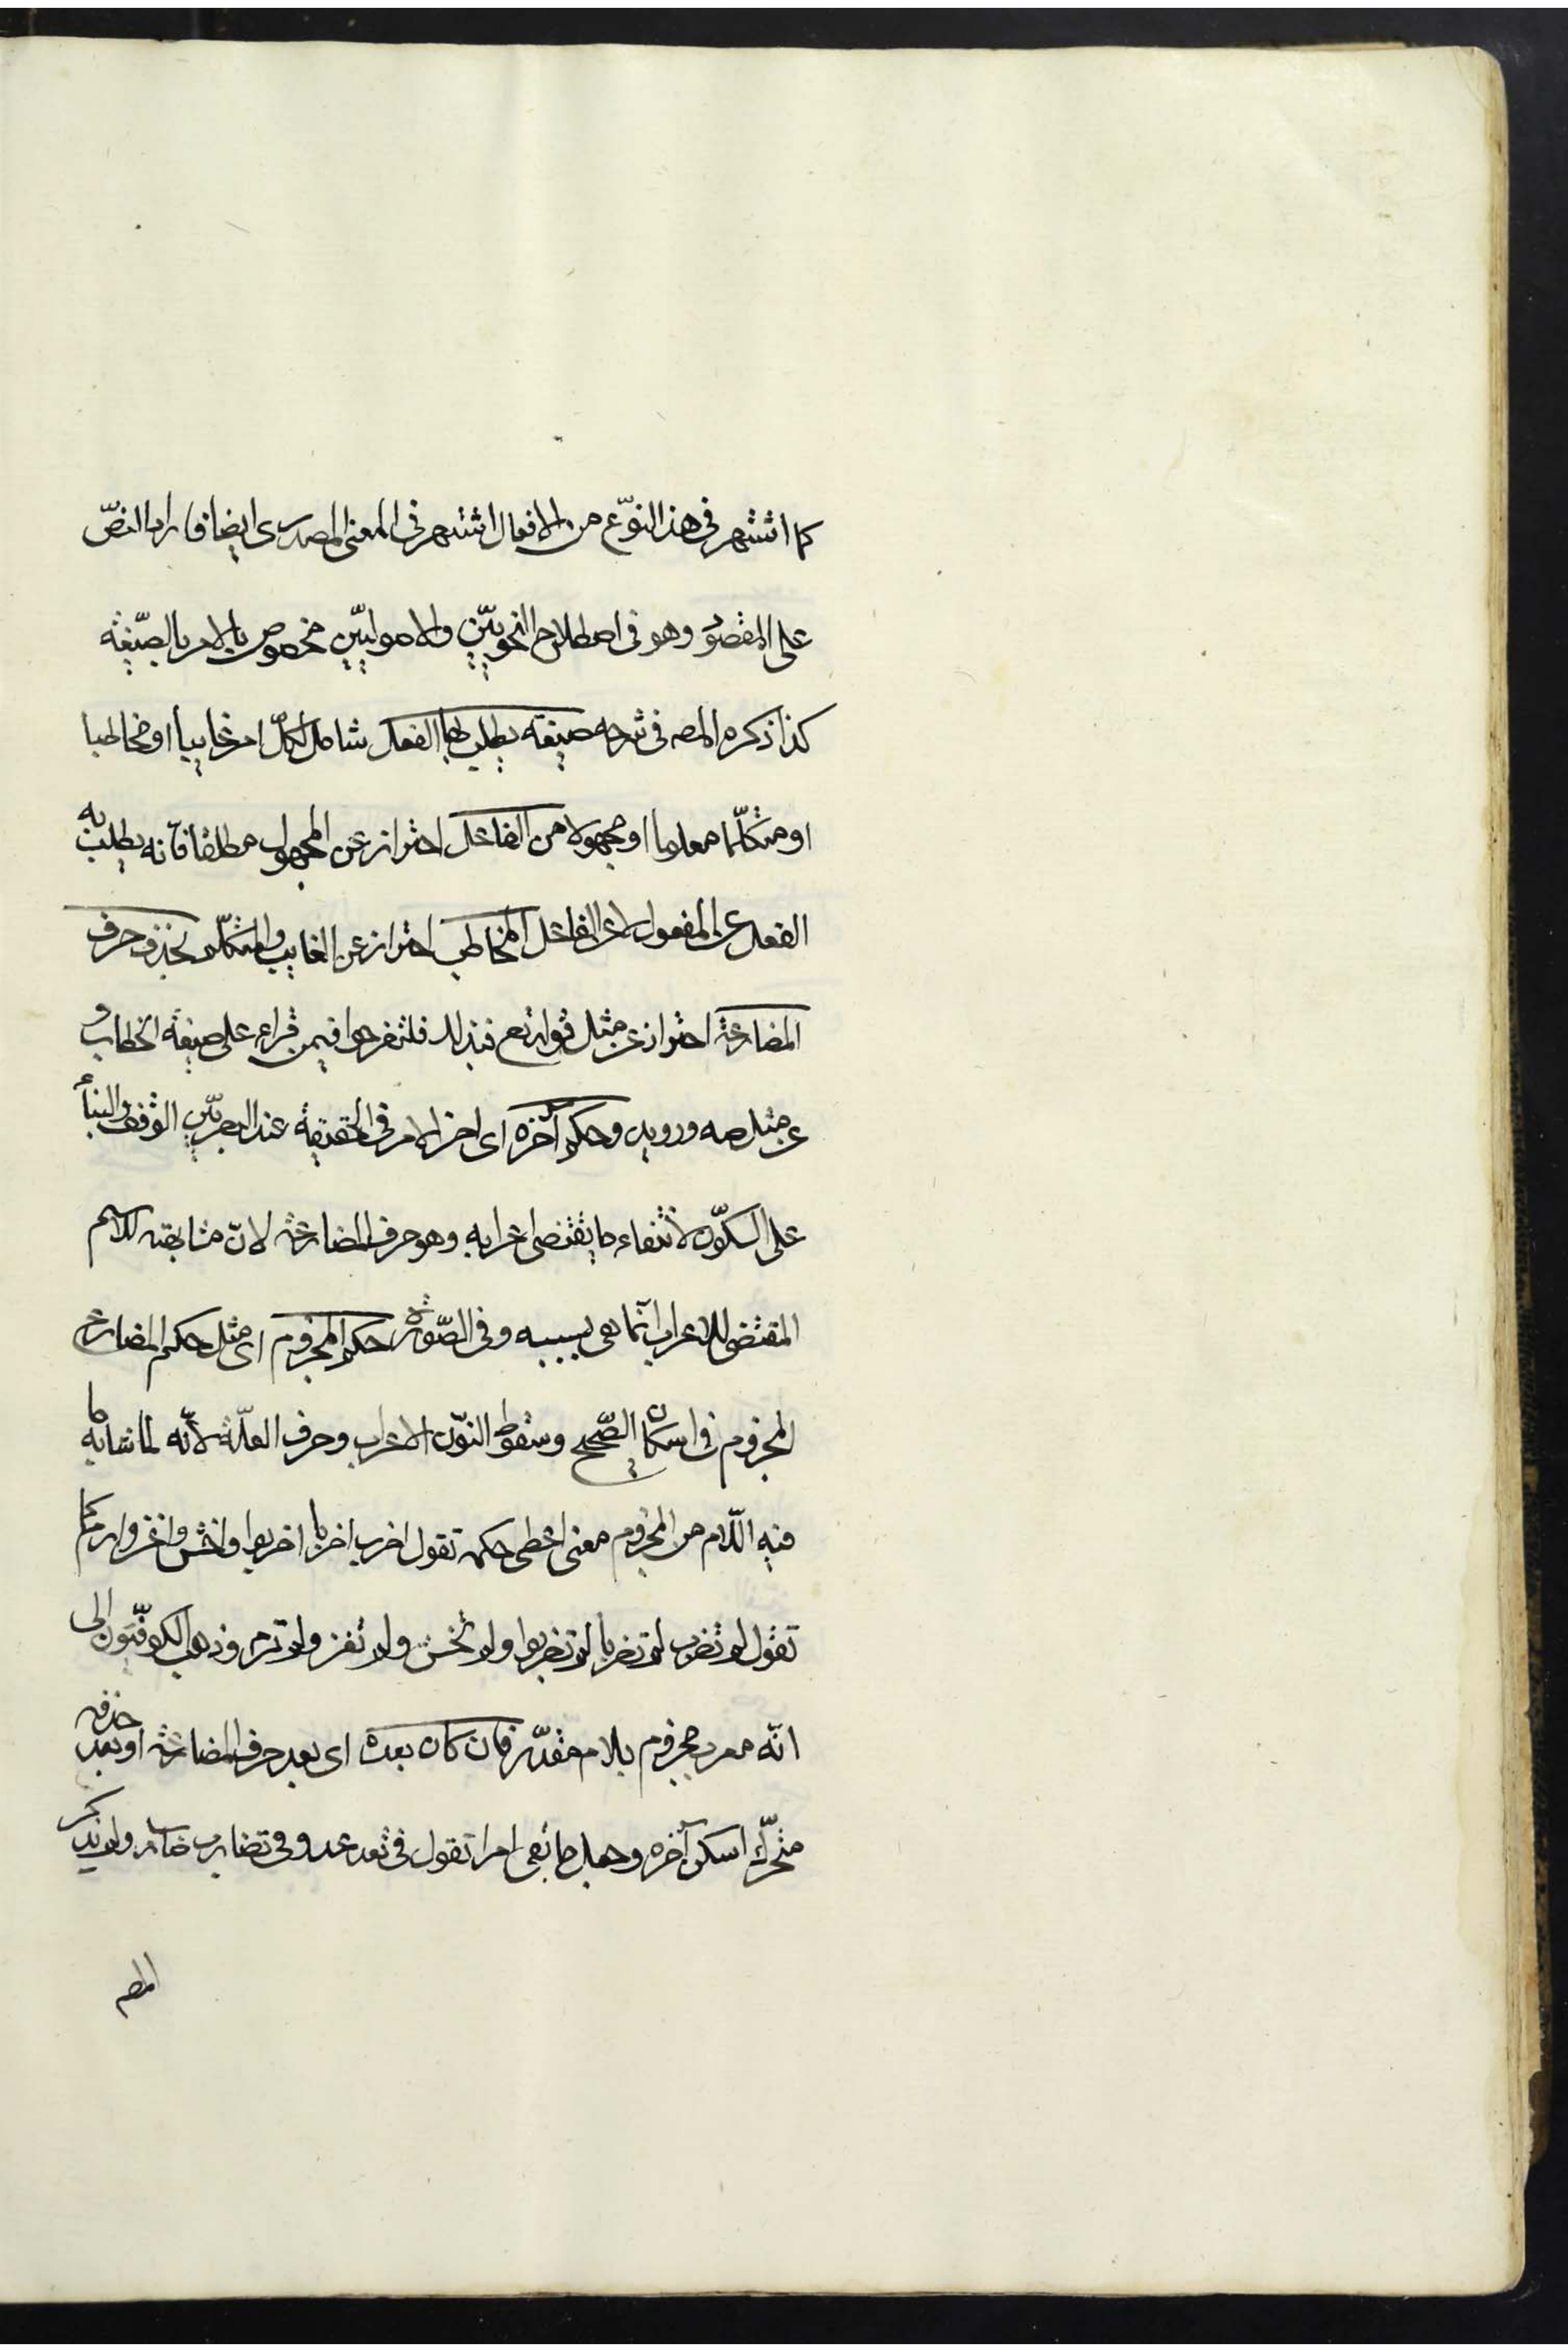 كما اشتهر فى هذا النوّع من الافعال اشتهر فى المعنى المصدرى ايضا فاراد النصّ
على المقصوّد وهو فى اصطلاح النحوييّن والاصولييّن مخصوص بالامر بالصيّغة
كذا ذكره المصه فى شرحه صيغة يطلب بها الفعل شامل لكلّ امر غايبا او مخاطبا
او متكلّما معلوما او مجهولا من الفاعل احتراز عن المجهول مطلقا فانّه يطلب به
الفعل عن المفعول لا عن الفاعل المخاطب احتراز عن الغايب والمتكلّم بحذف حرف
المضارعة احتراز عن مثل قوله تعم فبذلك فلتفرحوا فيمن قراء على صيغة الخطاب و
عن مثل صه ورويد وحكم آخره اى اخر الامر فى الحقيقة عند البصرييّن الوقف والبنأ
على السكوّن لانتفاء ما يقتضى اعرابه وهو حرف المضارعة لانّ مشابهته للاسم
المقتضى للاعراب انّما هى بسببه وفى الصّورة حكم المجزوم اى مثل حكم المضارع
المجزوم فى اسكان الصّحيح وسقوط النوّن الاعراب وحرف العلّة لانّه لما شابه ما
فيه اللّام من المجزوم معنى اعطى حكمه تقول اضرب اضربا اضربوا واخش واغز وارم كما
تقول لم تضرب لم تضربا لم تضربوا ولم تخش ولم تغز ولم ترم وذهب الكوفيّون الى
انّه معرب مجزوم بلام مقدّر فان كان بعده اى بعد حرف المضارعة او بعد حذفه
متحرّك اسكن آخره وجعل ما بقى امرا تقول فى تعد عد وفى تضارب ضارب ولم يذكر
المصه